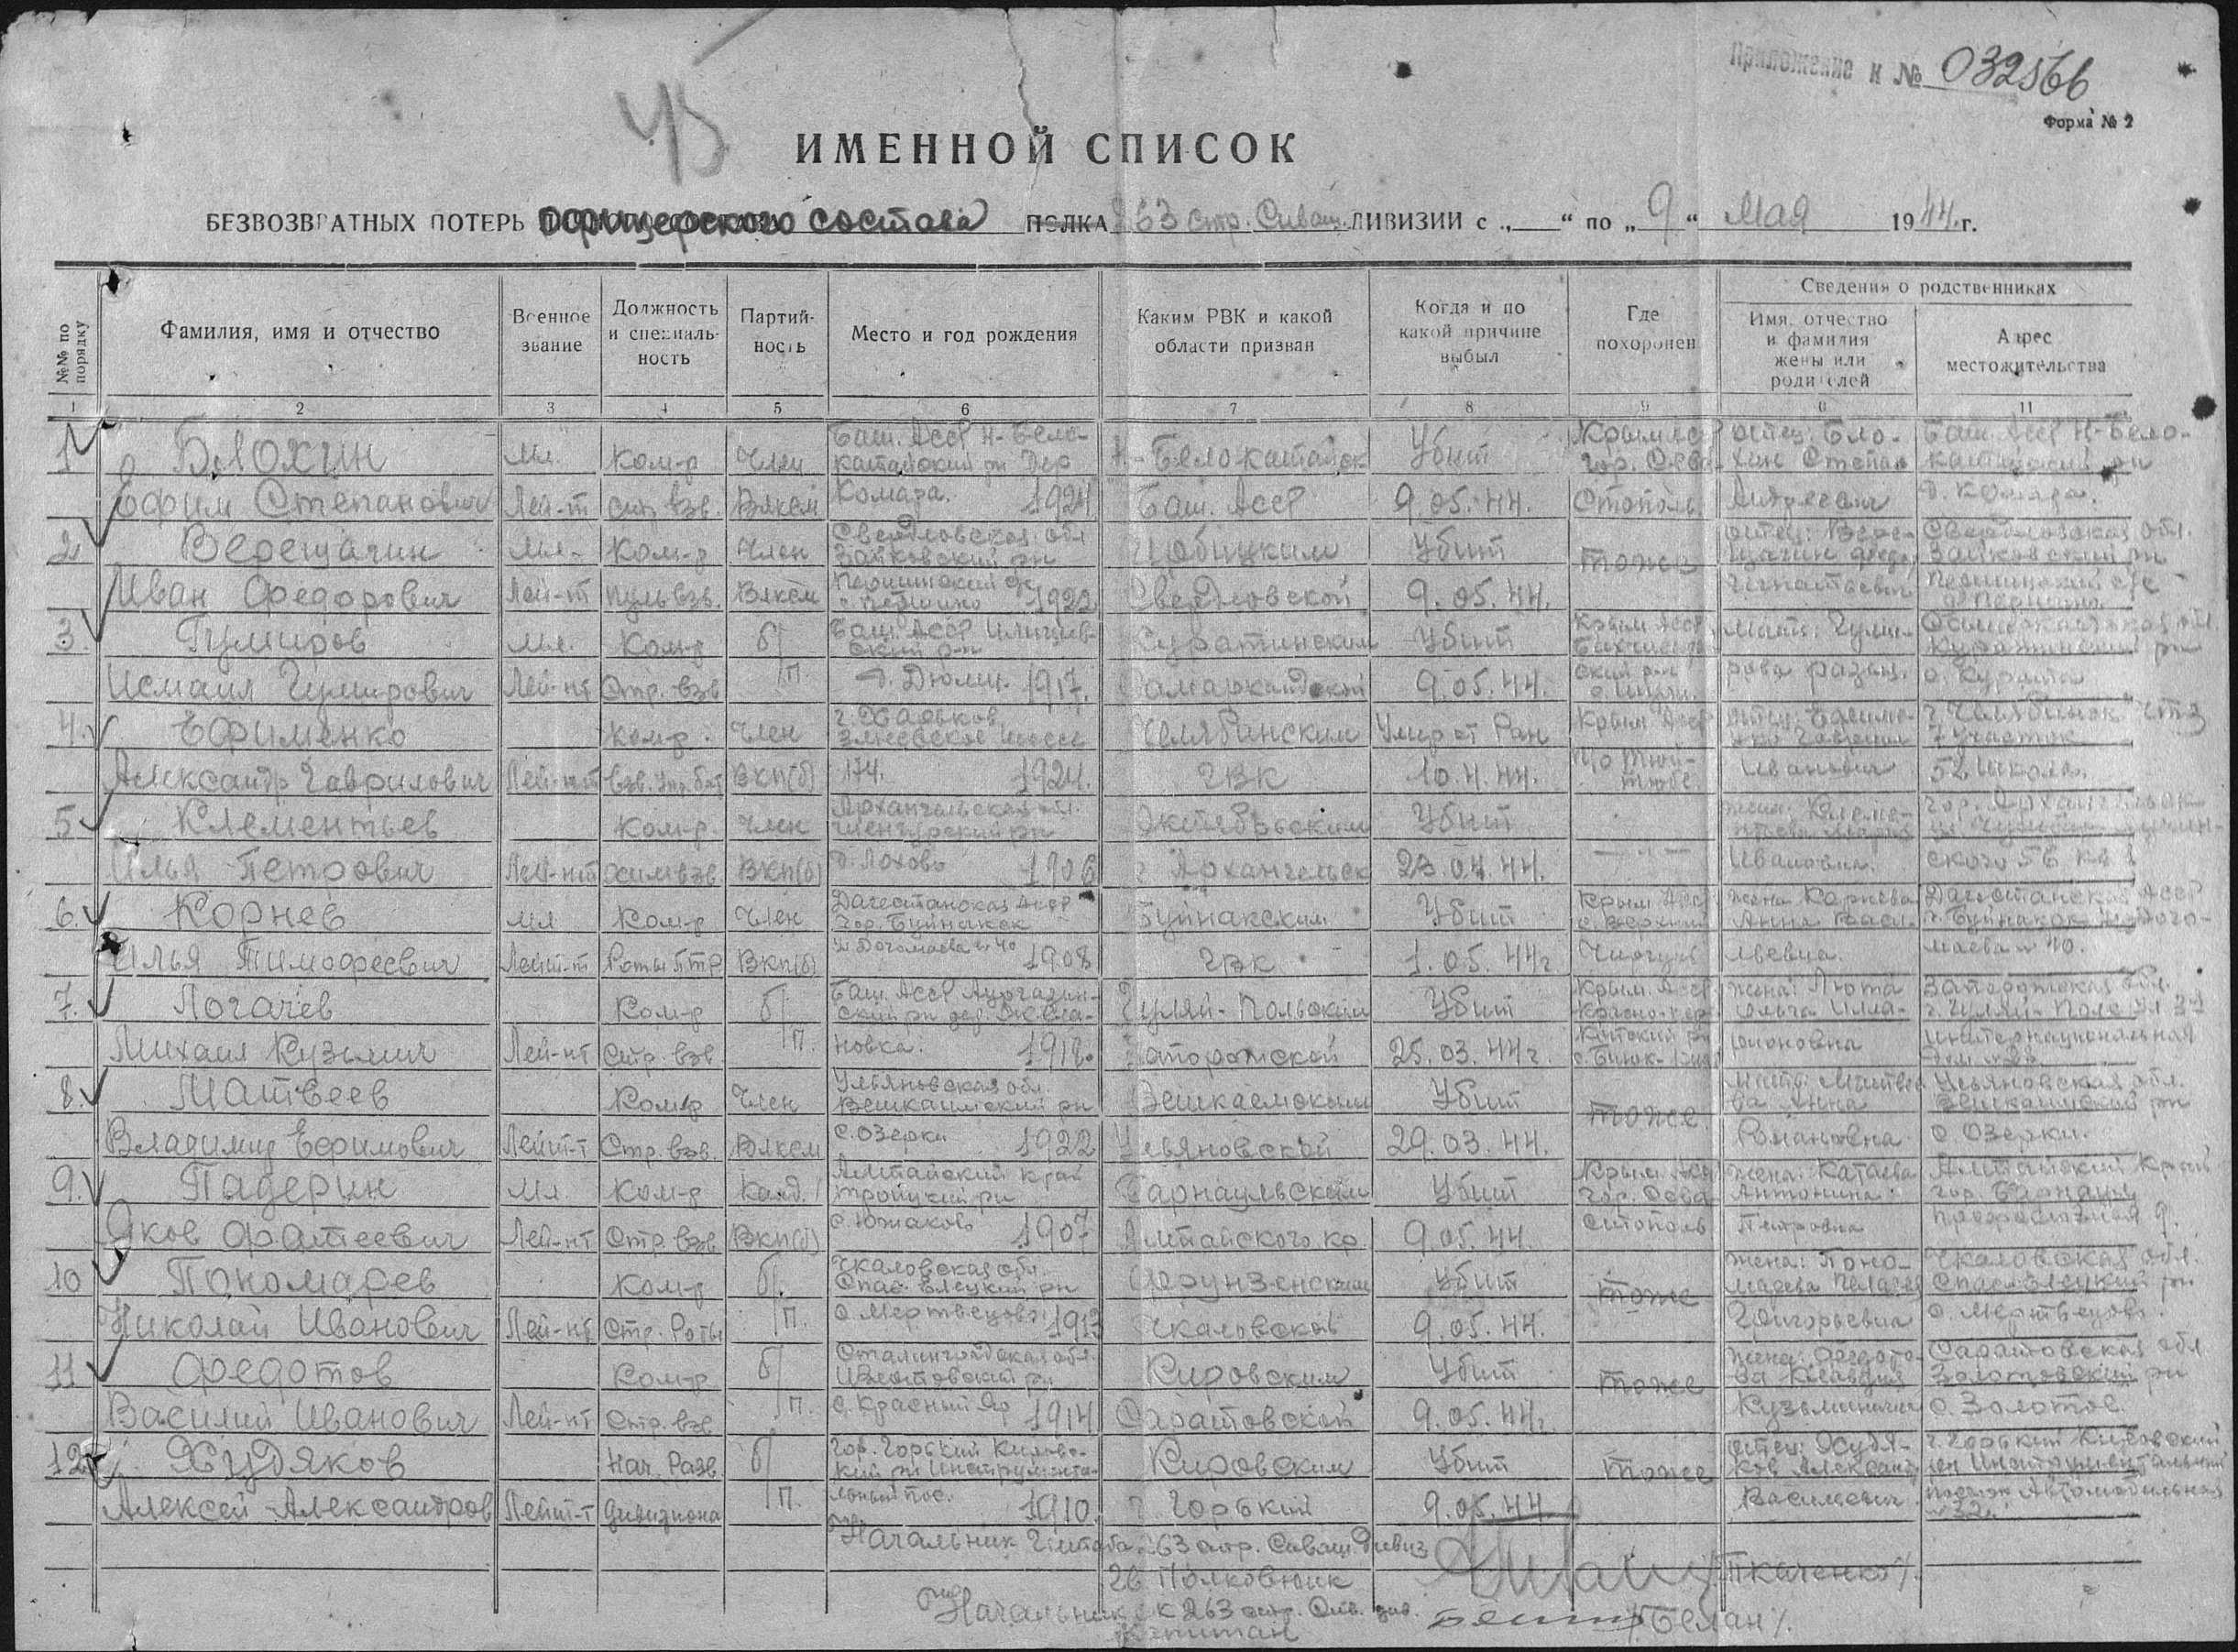 Приложение к № 032566
Форма № 2
45
ИМЕННОЙ СПИСОК
БЕЗВОЗВРАТНЫХ ПОТЕРЬ офицерского состава ПОЛКА 263 стр. Сиваш. ДИВИЗИИ с „ “ по „ 9 “ Мая 1944 г.
№№ по порядку
Фамилия, имя и отчество
Военное звание
Должность и специальность
Партийность
Место и год рождения
Каким РВК и какой области призван
Когда и по какой причине выбыл
Где похоронен
Сведения о родственниках
Имя, отчество и фамилия жены или родителей
Адрес местожительства
1 2 3 4 5 6 7 8 9 0 11
1 Блохин Мл. Ком-р Член Баш. Асср Н-Бело- Н-Белокатайск Убит Крым Асср отец: Бло- Баш. Асср Н-Бело-
катайский рн Дер гор. Сева- хин Степан катайский рн
Ефим Степанович Лей-т стр. взв. Влксм Комара. 1924 Баш. Асср 9.05.44. стополь Андреевич д. Комара.
2 Верещагин Мл. Ком-р Член Свердловская обл Убит тоже отец: Вере- Свердловская обл.
Зайковский рн щагин Федор Зайковский рн
Иван Федорович Лей-т пуль взв. Влксм 1922 Свердловской 9.05.44. Игнатьевич
3. Гумиров Мл. Ком-р б/ Баш. Асср Убит Крым Асср мать: Гуми-
Исмаил Гумирович Лей-нт Стр. взв п. д. Дюмн. 1917. Самаркандской 9.05.44. рова
4. Ефименко Ком-р Член г. Харьков Челябинским Умер от Ран Крым Асср отец: Ефиме- г. Челябинск ЧТЗ
Змеевское шоссе нко Гаврил 7 участок
Александр Гаврилович Лей-нт взв. Вкп(б) 174. 1924. ГВК 10.4.44. Иванович
5 Клементьев Ком-р. Член Архангельская обл. Октябрьским Убит жена: Клеме- гор. Архангельск
Илья Петрович Лей-нт Вкп(б) 1906 г. Архангельск 23.04.44. — " — Ивановна.
6. Корнев мл Ком-р Член Дагестанская Асср Буйнакским Убит Крым Асср жена Корнева Дагестанская Асср
гор. Буйнакск с. Верхний Анна Васи- г. Буйнакск
Илья Тимофеевич Лейт-т Роты птр Вкп(б) 1908 ГВК 1.05.44г Чоргунь льевна. 40.
7. Логачев Ком-р б/ Баш. Асср Гуляй-Польский Убит Крым. Асср жена: Запорожская обл.
Красно-пер г. Гуляй-Поле
Михаил Кузьмич Лей-нт Стр. взв. п. новка. 1918. Запорожской 25.03.44г. рионовна
8. Матвеев Ком-р Член Ульяновская обл. Вешкаемским Убит тоже Мать: Матвее- Ульяновская обл.
Вешкаимский рн ва Анна Вешкаимский рн
Владимир Ефимович Лейт-т Стр. взв. Влксм с. Озерки 1922 Ульяновской 29.03.44. Романовна с Озерки.
9. Падерин Мл. Ком-р Канд. Алтайский край Барнаульским Убит Крым. Асср жена: Катаева Алтайский Край
Троицкий рн гор. Сева Антонина гор. Барнаул
Яков Фатеевич Лей-нт Стр. взв Вкп(б) с. Южаково 1907 Алтайского кр. 9.05.44. стополь Петровна
10 Пономарев Ком-р б/ Чкаловская обл. Фрунзенским Убит тоже жена: Поно- Чкаловская обл.
рн марева Пелагея рн
Николай Иванович Лей-нт Стр. Роты п. с. Мертвецово 1913 Чкаловской 9.05.44. Григорьевна с. Мертвецово.
11 Федотов Ком-р б/ Сталинградская обл. Кировским Убит тоже жена: Федото- Саратовская обл
рн ва Клавдия Золотовский рн
Василий Иванович Лей-нт Стр. взв п. с. Красный Яр 1914 Саратовской 9.05.44г. Кузьминична с. Золотое.
12 Худяков Нач. Разв б/ гор. Горький Кировс- Кировским Убит тоже отец: Худя- г. Горький Кировский
кий рн Инструмента- ков Александр рн Инструментальный
Алексей Александров Лейт-т дивизиона п. льный пос. 1910. г. Горький 9.05.44 Васильевич поселок Автомобильная
32.
Начальник Штаба 263 стр. Сиваш. дивиз
гв Полковник /Ткаченко/.
Начальник 263 стр. Сив. див.
Капитан /Белан/.